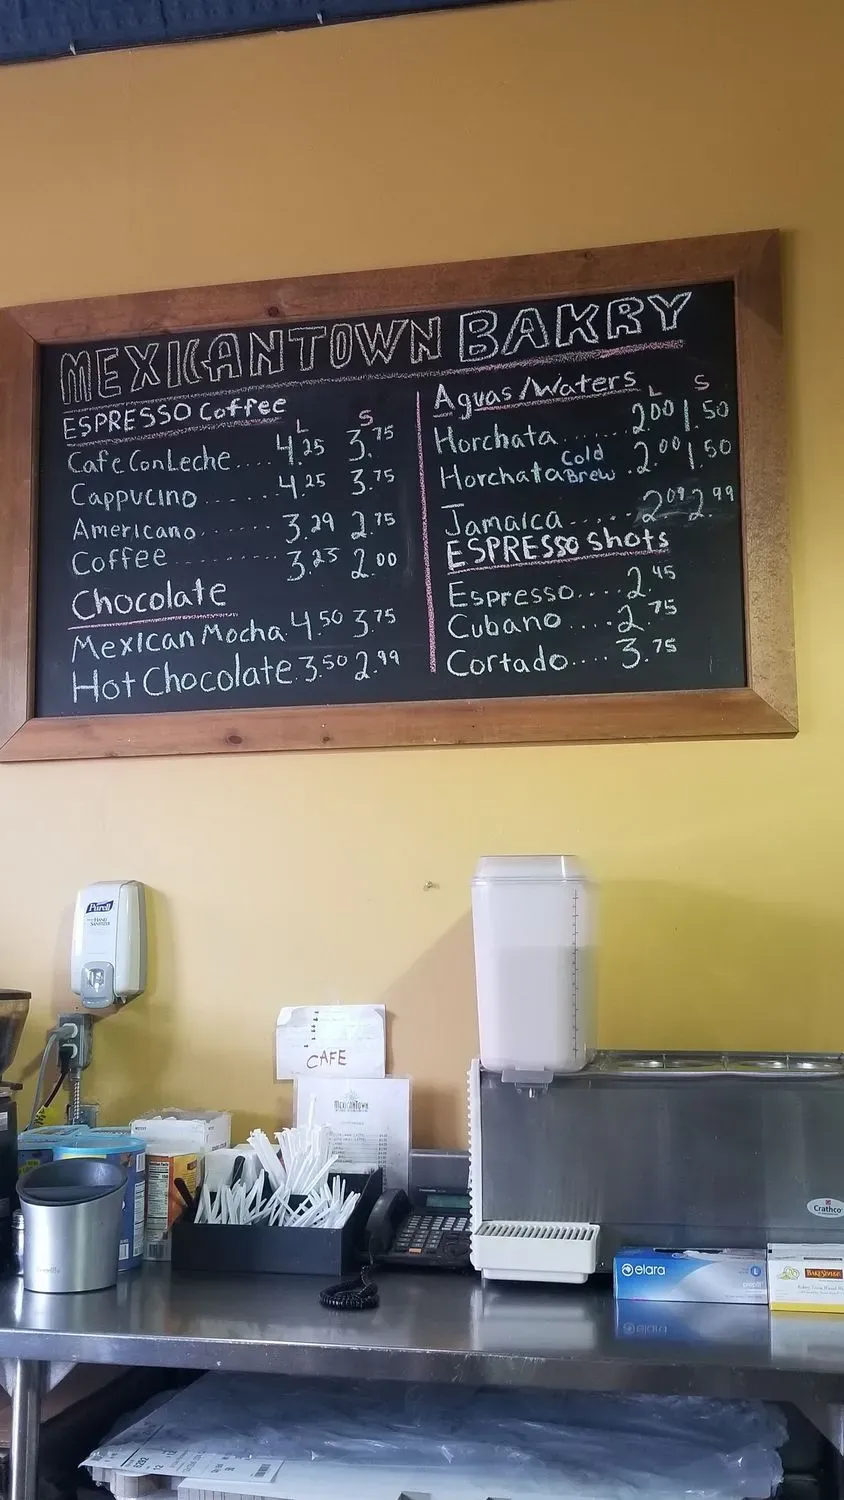 MEXICANTOWN BAKRY
ESPRESSO Coffee
L S
Cafe Con Leche.... 4.25 3.75
Cappucino ...... 4.25 3.75
Americano....... 3.29 2.75
Coffee ......... 3.25 2.00
Chocolate
Mexican Mocha. 4.50 3.75
Hot Chocolate. 3.50 2.99
Aguas/Waters
L S
Horchata...... 2.00 1.50
Horchata Cold Brew . 2.00 1.50
Jamaica ..... 2.09 2.99
ESPRESSO Shots
Espresso.... 2.45
Cubano ..... 2.75
Cortado.... 3.75
Purell
HAND SANITIZER
CAFE
MEXICANTOWN
Crathco
elara
L
BAKESENSE